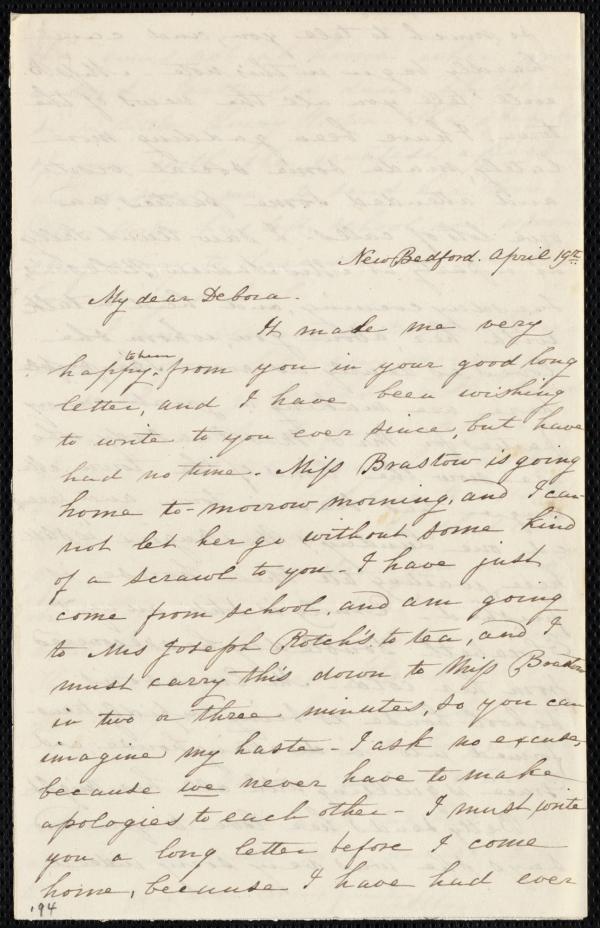 New Bedford. April 19th
My dear Debora.
It made me very
happy, to hear from you in your good long
letter, and I have been wishing
to write to you ever since, but have
had no time. Miss Brastow is going
home to-morrow morning, and I can
not let her go without some kind
of a scrawl to you - I have just
come from school, and am going
to Mrs Joseph Rotch's to tea, and I
must carry this down to Miss Brastow
in two or three minutes, so you can
imagine my haste - I ask no excuse,
because we never have to make
apologies to each other - I must write
you a long letter before I come
home, because I have had ever
194